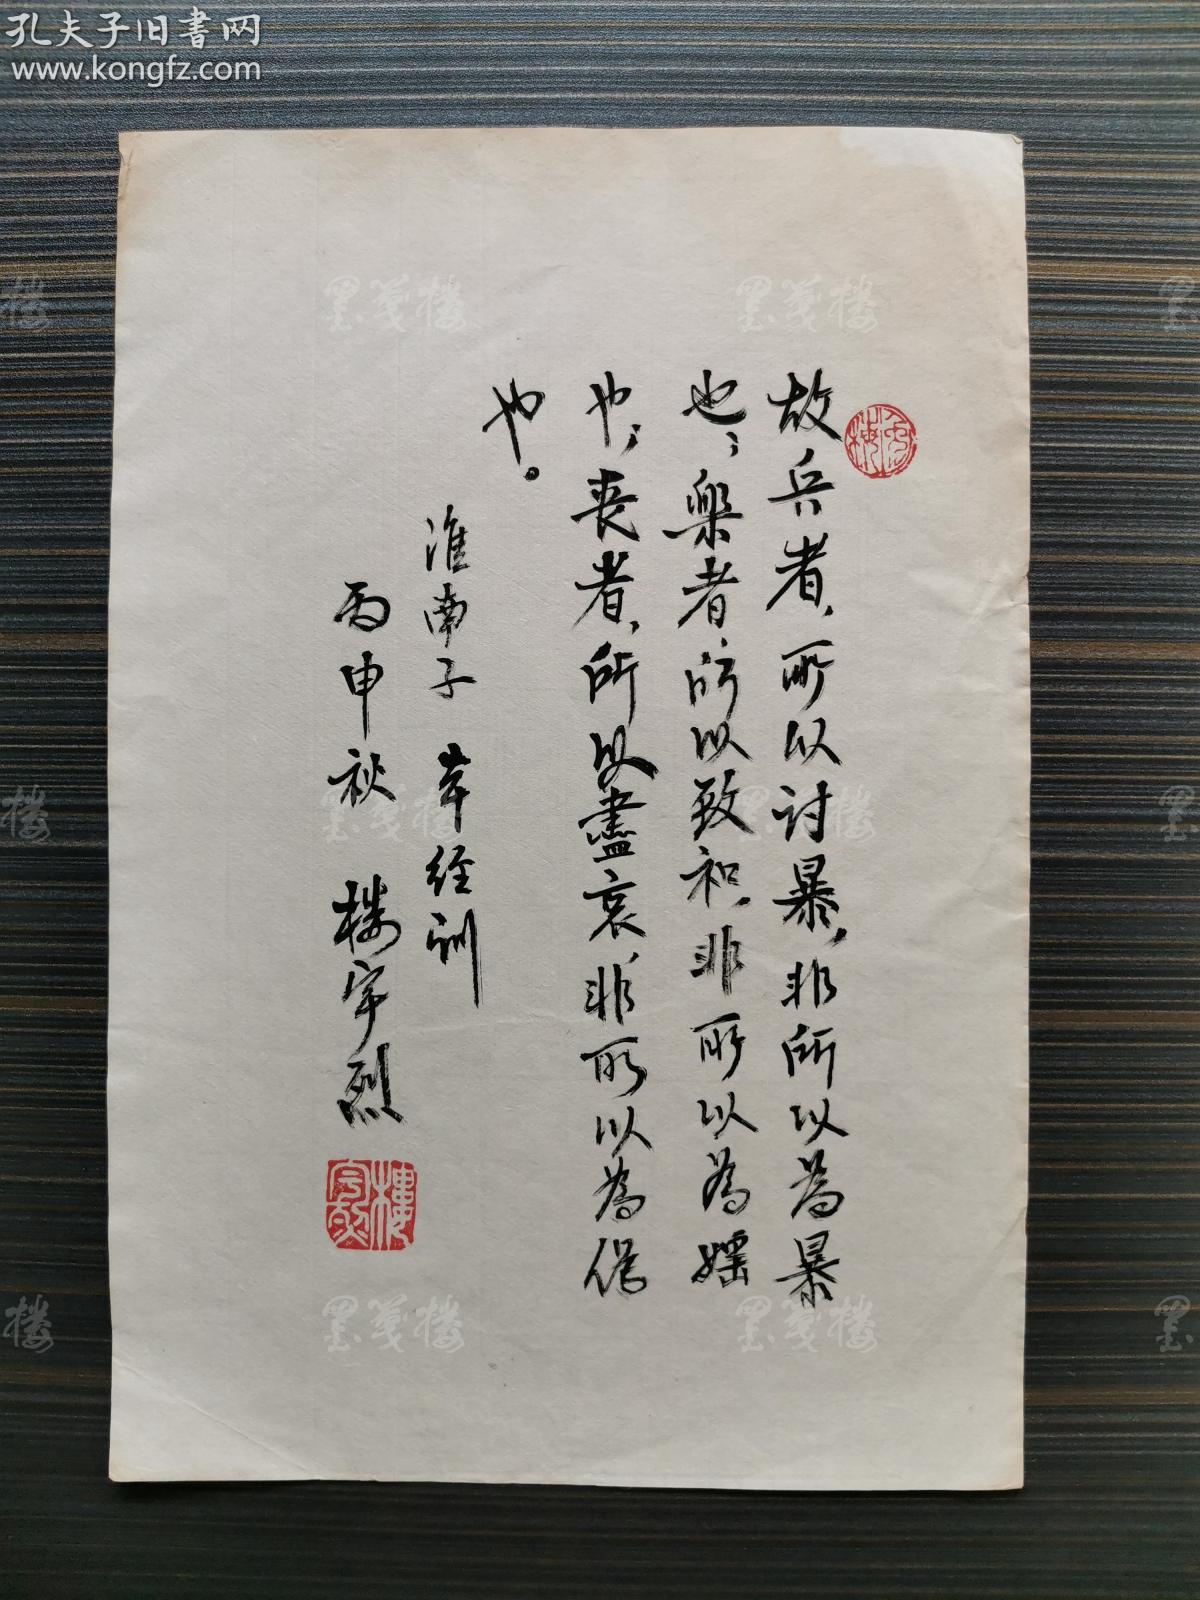 孔夫子旧書网
www.kongfz.com
故兵者，所以讨暴，非所以為暴
也；樂者，所以致和，非所以為婬
也；丧者，所以盡哀，非所以為偽
也。
淮南子 本经训
丙申秋 楼宇烈
樓宇烈
墨笺楼